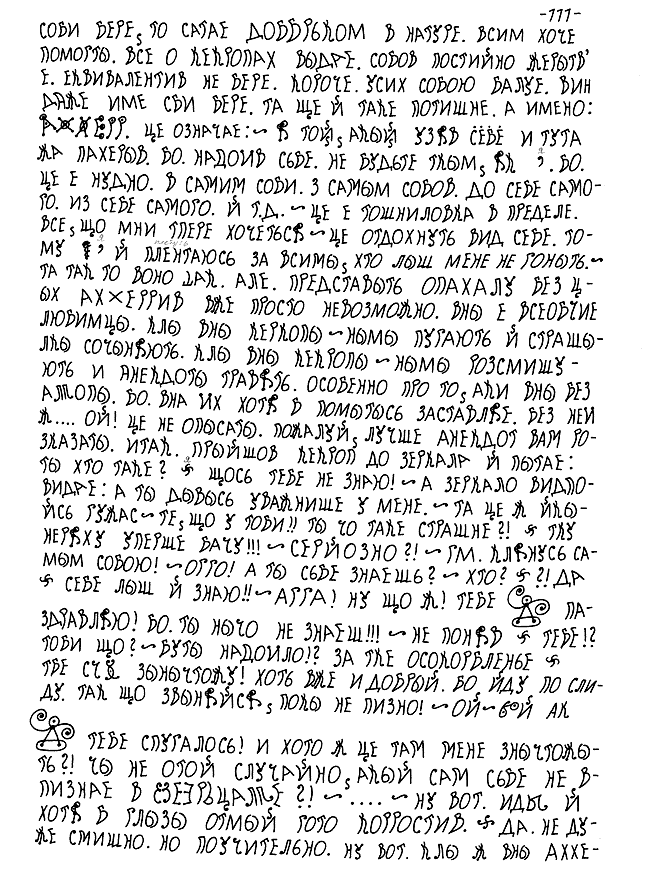 -111-
СОБИ БЕРЕ, ТО САГАЕ В НАТУРЕ. ВСИМ ХОЧЕ
ПОМОГТЫ. ВСЕ О КЕКРОПАХ ВЫДРЕ. СОБОВ ПОСТИЙНО ЖЕРЫТВ'
Е. ЕКВИВАЛЕНТИВ НЕ БЕРЕ. КОРОЧЕ. УСИХ СОБОЮ БАЛУЕ. ВИН
ДАЖЕ ИМЕ СВИ БЕРЕ. ТА ЩЕ Й ТАКЕ ПОТИШНЕ. А ИМЕНО:
ЦЕ ОЗНАЧАЕ:~ Я ТОЙ, АКЫЙ УЗЯВ СЕБЕ И ТУТА
НА ПАХЕРЫВ. БО. НАДОИВ СЬБЕ. НЕ БУДЬТЕ ТКЫМ, ЯК Я. БО.
ЦЕ Е НУДНО. В САМИМ СОБИ. З САМЫМ СОБОВ. ДО СЕБЕ САМО-
ГО. ИЗ СЕБЕ САМОГО. Й Т.Д. ~ ЦЕ Е ТОШНИЛОВКА В ПРЕДЕЛЕ.
ВСЕ, ЩО МНИ ТПЕРЕ ХОЧЕТЬСЯ ~ ЦЕ ОТДОХНУТЬ ВИД СЕБЕ. ТО-
МУ Я Й ПЛЕНТАЮСЬ ЗА ВСИМЫ, ХТО ЛЫШ МЕНЕ НЕ ГОНЫТЬ.~
ТА ТАК ТО ВОНО ДАК. АЛЕ. ПРЕДСТАВЫТЬ ОПАХАЛУ БЕЗ Ц-
ЫХ АХХЕРРИВ ВЖЕ ПРОСТО НЕВОЗМОЖНО. ВНЫ Е ВСЕОБЧИЕ
ЛЮБИМЦЫ. КЛЫ ВНЫ КЕРКОПЫ ~ НЫМЫ ПУГАЮТЬ Й СТРАШЫ-
ЛКЫ СОЧЫНЯЮТЬ. КЛЫ ВНЫ КЕКРОПЫ ~ НЫМЫ РОЗСМИШУ-
ЮТЬ И АНЕКДОТЫ ТРАВЯТЬ. ОСОБЕННО ПРО ТО, АКИ ВНЫ БЕЗ
БО. ВНА ИХ ХОТЯ В ПОМЫТЫСЬ ЗАСТАВЛЯЕ. БЕЗ НЕИ
Ж.... ОЙ! ЦЕ НЕ ОПЫСАТЫ. ПОЖАЛУЙ, ЛУЧШЕ АНЕКДОТ ВАМ РО-
ЗКАЗАТЫ. ИТАК. ПРЫЙШОВ КЕКРОП ДО ЗЕРКАЛА Й ПЫТАЕ:
ТЫ ХТО ТАКЕ? Я ЩОСЬ ТЕБЕ НЕ ЗНАЮ! ~ А ЗЕРКАЛО ВИДПО-
ВИДАЕ: А ТЫ ДЫВЫСЬ УВАЖНИШЕ У МЕНЕ. ~ ТА ЦЕ Ж ЙКЫ-
ЙСЬ ГУЖАС ~ ТЕ, ЩО У ТОБИ!! ТЫ ЧО ТАКЕ СТРАШНЕ?! Я ТКУ
НЕРЯХУ УПЕРШЕ БАЧУ!!! ~ СЕРЙОЗНО?! ~ ГМ. КЛЯНУСЬ СА-
МЫМ СОБОЮ! ~ ОГГО! А ТЫ СЬБЕ ЗНАЕШЬ? ~ ХТО? Я ?! ДА
Я СЕБЕ ЛЫШ Й ЗНАЮ!! ~ АГГА! НУ ЩО Ж! ТЕБЕ ПА-
ЗДРАВЛЯЮ! БО. ТЫ НЫЧО НЕ ЗНАЕШ!!! ~ НЕ ПОНЯВ Я ТЕБЕ!?
ТОБИ ЩО? ~ БУТЫ НАДОИЛО!? ЗА ТКЕ ОСКОРБЛЕНЬЕ Я
ТБЕ ЗЫНЫЧТОЖУ! ХОТЬ ВЖЕ И ДОБРЫЙ. БО ЙДУ ПО СЛИ-
ДУ. ТАК ЩО ЗВЫНЯЙСЯ, ПОКЫ НЕ ПИЗНО! ~ ОЙ ~ ВОЙ АК
ТЕБЕ СПУГАЛОСЬ! И ХОТО Ж ЦЕ ТАМ МЕНЕ ЗНЫЧТОЖЫ-
ТЬ?! ЧЫ НЕ ОТОЙ СЛУЧАЙНО, АКЫЙ САМ СЬБЕ НЕ В-
ПИЗНАЕ В ?! ~ .... ~ НУ ВОТ. ИДЫ Й
ХОТЯ В ГЛЫЗЫ ОТМЫЙ ГОТО КОРРОСТИВ. Я ДА. НЕ ДУ-
ЖЕ СМИШНО. НО ПОУЧИТЕЛЬНО. НУ ВОТ. КЛЫ Ж ВНЫ АХХЕ-